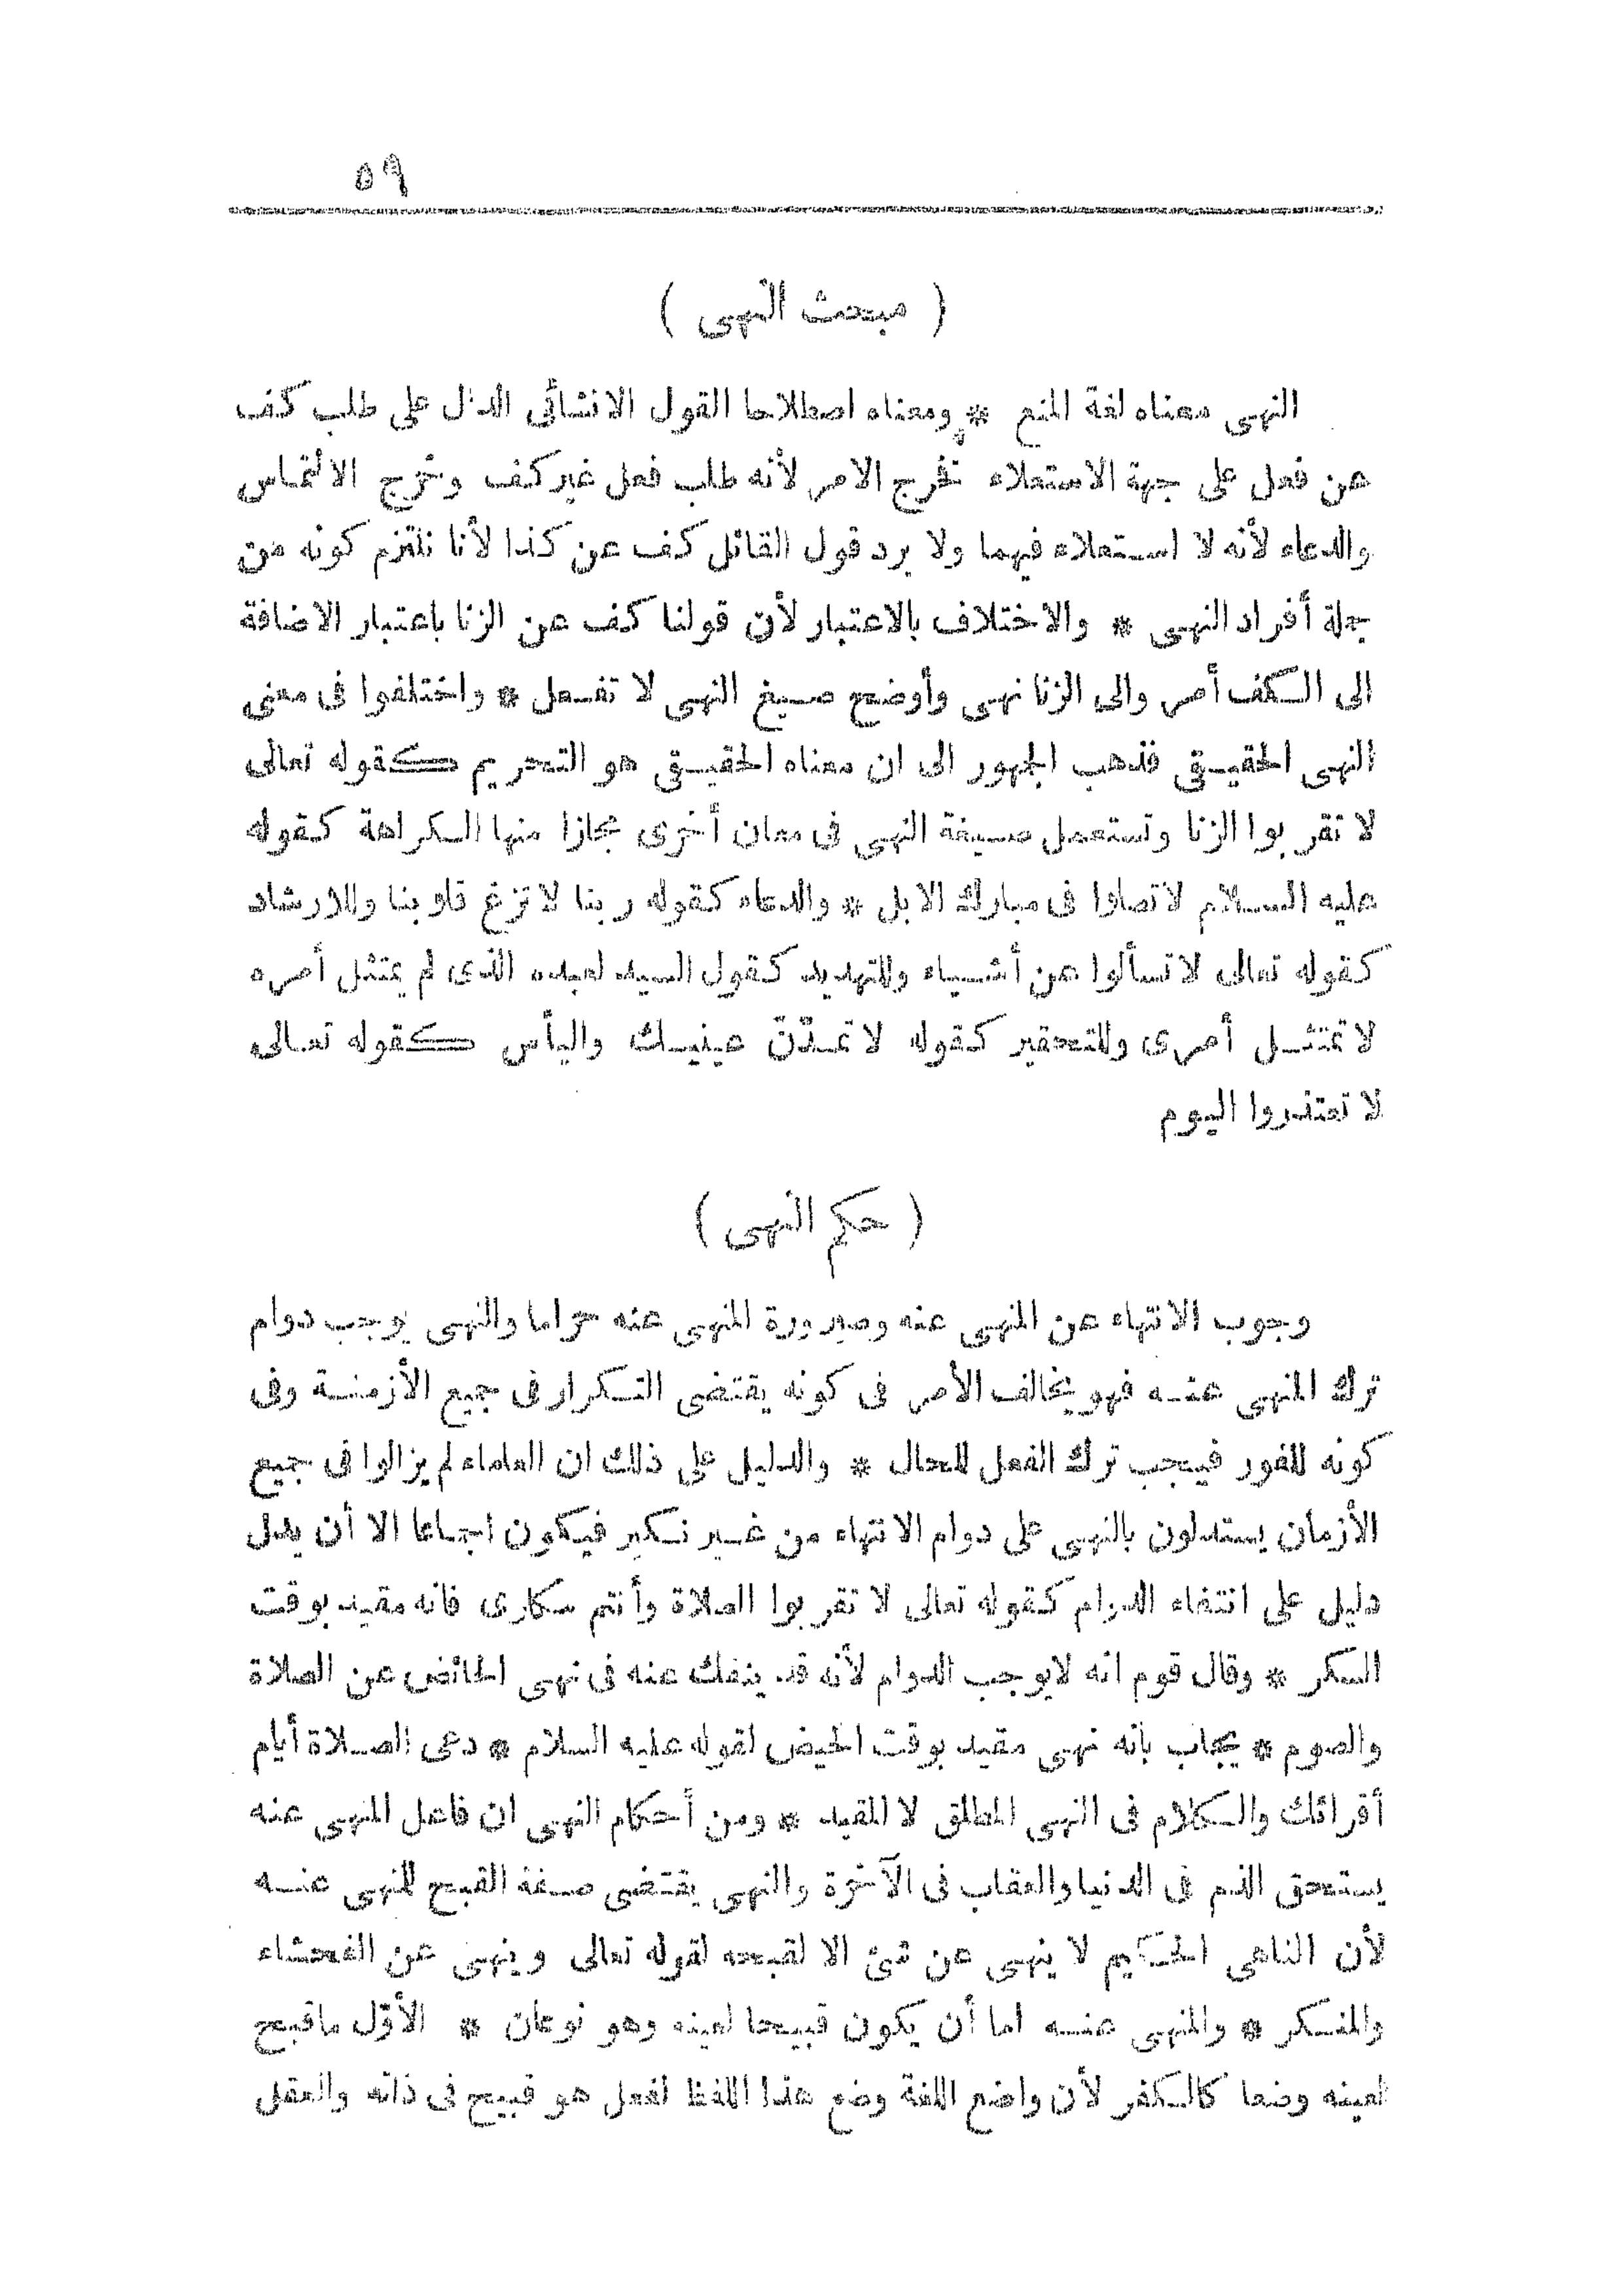 ٥٩
( مبحث النهى )
النهى معناه لغة المنع * ومعناه اصطلاحا القول الانشائى الدال على طلب كف
عن فعل على جهة الاستعلاء تخرج الامر لأنه طلب فعل غير كف وخرج الالتماس
والدعاء لأنه لا استعلاء فيهما ولا يرد قول القائل كف عن كذا لأنا نلتزم كونه من
جملة أفراد النهى * والاختلاف بالاعتبار لأن قولنا كف عن الزنا باعتبار الاضافة
الى الكف أمر والى الزنا نهى وأوضح صيغ النهى لا تفعل * واختلفوا فى معنى
النهى الحقيقى فذهب الجمهور الى ان معناه الحقيقى هو التحريم كقوله تعالى
لا تقربوا الزنا وتستعمل صيغة النهى فى معان أخرى مجازا منها الكراهة كقوله
عليه السلام لا تصلوا فى مبارك الابل * والدعاء كقوله ربنا لا تزغ قلوبنا وللارشاد
كقوله تعالى لا تسألوا عن أشياء وللتهديد كقول السيد لعبده الذى لم يمتثل أمره
لا تمتثل أمرى وللتحقير كقوله لا تمدّنّ عينيك واليأس كقوله تعالى
لا تعتذروا اليوم
( حكم النهى )
وجوب الانتهاء عن المنهى عنه وصيرورة المنهى عنه حراما والنهى يوجب دوام
ترك المنهى عنه فهو يخالف الأمر فى كونه يقتضى التكرار فى جميع الأزمنة وفى
كونه للفور فيجب ترك الفعل للحال * والدليل على ذلك ان العلماء لم يزالوا فى جميع
الأزمان يستدلون بالنهى على دوام الانتهاء من غير نكير فيكون اجماعا الا أن يدل
دليل على انتفاء الدوام كقوله تعالى لا تقربوا الصلاة وأنتم سكارى فانه مقيد بوقت
السكر * وقال قوم انه لا يوجب الدوام لأنه قد ينفك عنه فى نهى الحائض عن الصلاة
والصوم * يجاب بأنه نهى مقيد بوقت الحيض لقوله عليه السلام * دعى الصلاة أيام
أقرائك والكلام فى النهى المطلق لا المقيد * ومن أحكام النهى ان فاعل المنهى عنه
يستحق الذم فى الدنيا والعقاب فى الآخرة والنهى يقتضى صفة القبح للمنهى عنه
لأن الناهى الحكيم لا ينهى عن شئ الا لقبحه لقوله تعالى وينهى عن الفحشاء
والمنكر * والمنهى عنه اما أن يكون قبيحا لعينه وهو نوعان * الأوّل ماقبح
لعينه وضعا كالكفر لأن واضع اللغة وضع هذا اللفظ لفعل هو قبيح فى ذاته والعقل